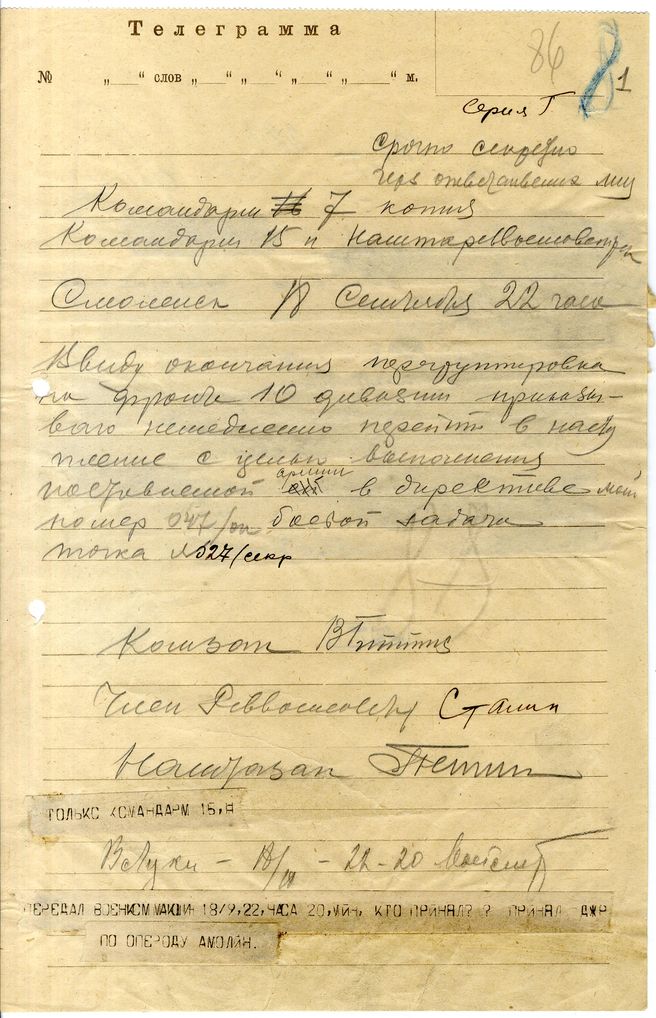 Телеграмма
№ „ “ слов „ “ „ “ „ “ „ “ м.
86
8
1
Серия Г
Срочно секретно
Командарм 7 копия
Командарм 15 и наштареввоенсоветреспе
Смоленск 18 Сентября 22 часа
Ввиду окончания перегруппировки
на фронте 10 дивизии приказы-
ваю немедленно перейти в насту
пление с целью выполнения
поставленной армии в директиве моей
номер 047/оп боевой задачи
точка № 527/секр
Комзап ВГиттис
Член Реввоенсовета Сталин
Наштазап Петин
ТОЛЬКО КОМАНДАРМ 15,Я
ВЛуки – 18/IX – 22-20
ПЕРЕДАЛ ВОЕНКОМ 18/9,22,ЧАСА 20,МИН, КТО ПРИНЯЛ?? ПРИНЯЛ ДЖР
ПО ОПЕРОДУ АМОЛИН.